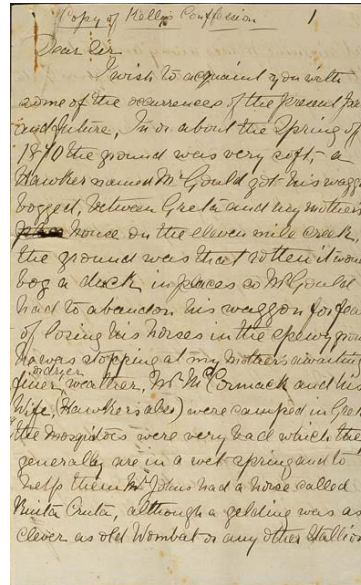 Copy of Kellys Conffession 1
Dear Sir
I wish to acquaint you with
some of the occurrences of the present past
and future, In or about the Spring of
1870 the ground was very soft, a
Hawker named Mr Gould got his wagg
bogged, between Greta and my mother's
house on the eleven mile creek
the ground was that rotten it wou
bog a duck in places so Mr Gould
had to abandon his waggon for fea
of losing his horses in the spewy grou
he was stopping at my Mother's awaitin
finer or dryer weather, Mr McCormack and his
Wife, (Hawkers also) were camped in Gre
the Mosquitoes were very bad which the
generally are in a wet spring and to
help them Mr Johns had a horse called
Ruita Cruta, although a gelding was as
clever as old Wombat or any other Stallion